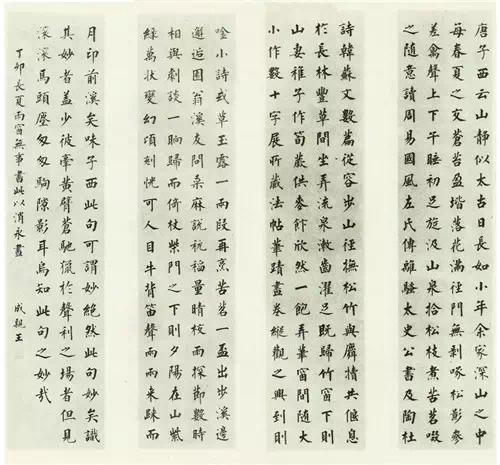 唐子西云山似太古日長如小年余家深山之中
每春夏之交蒼苔盈堦落花滿徑門無剥啄松影參
差禽聲上下午睡初足旋汲山泉拾松枝煮苦茗啜
之隨意讀周易國風左氏傳離騷太史公書及陶杜
詩韓蘇文數篇從容步山徑撫松竹與麛犢共偃息
於長林豐草間坐弄流泉漱齒濯足既歸竹窗下則
山妻稚子作筍蕨供麥飯欣然一飽弄筆窗間隨大
小作數十字展所藏法帖筆蹟畫卷縱觀之興到則
唫小詩或草玉露一兩段再烹苦茗一盃出步溪邊
邂逅園翁溪友問桑麻說秔稻量晴校雨探節數時
相與劇談一晌歸而倚杖柴門之下則夕陽在山紫
綠萬狀變幻頃刻恍可人目牛背笛聲兩兩來歸而
月印前溪矣味子西此句可謂妙絕然此句妙矣識
其妙者盖少彼牽黃臂蒼馳獵於聲利之場者但見
滾滾馬頭塵匆匆駒隙影耳烏知此句之妙哉
丁卯長夏雨窗無事書此以消永晝
成親王